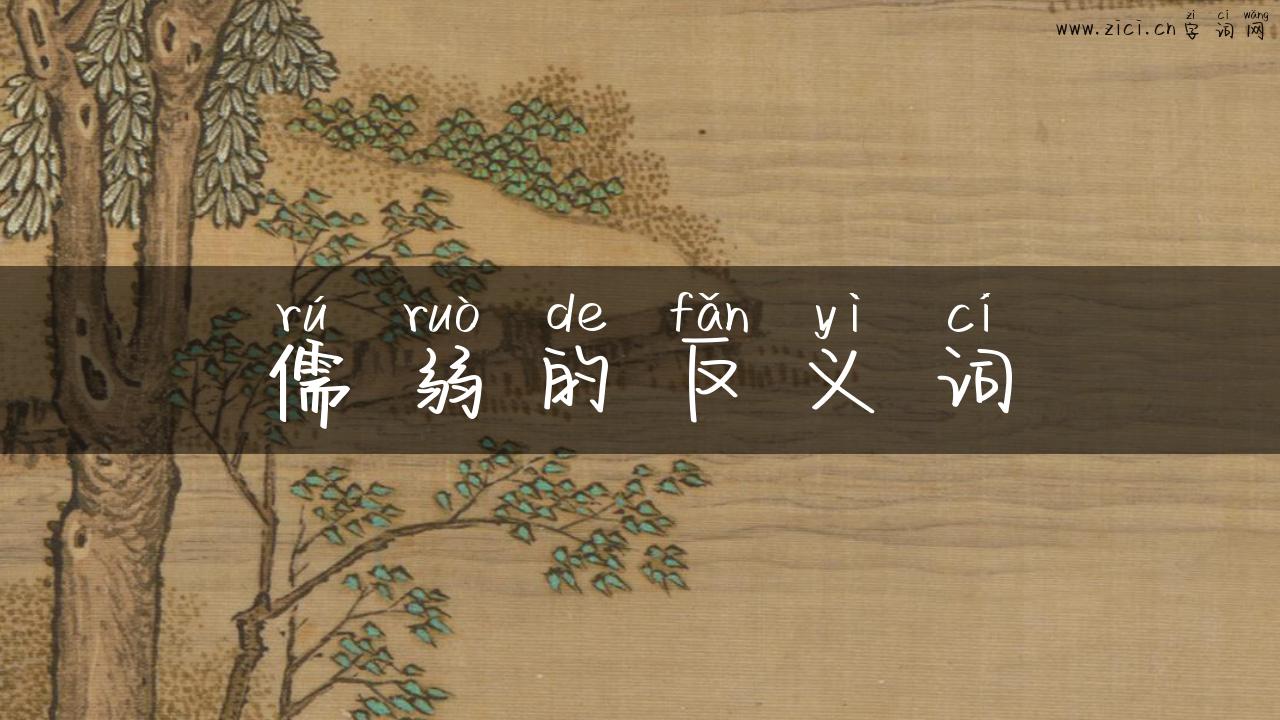 zì cí wǎng
www.zici.cn 字 词 网
rú ruò de fǎn yì cí
儒 弱 的 反 义 词